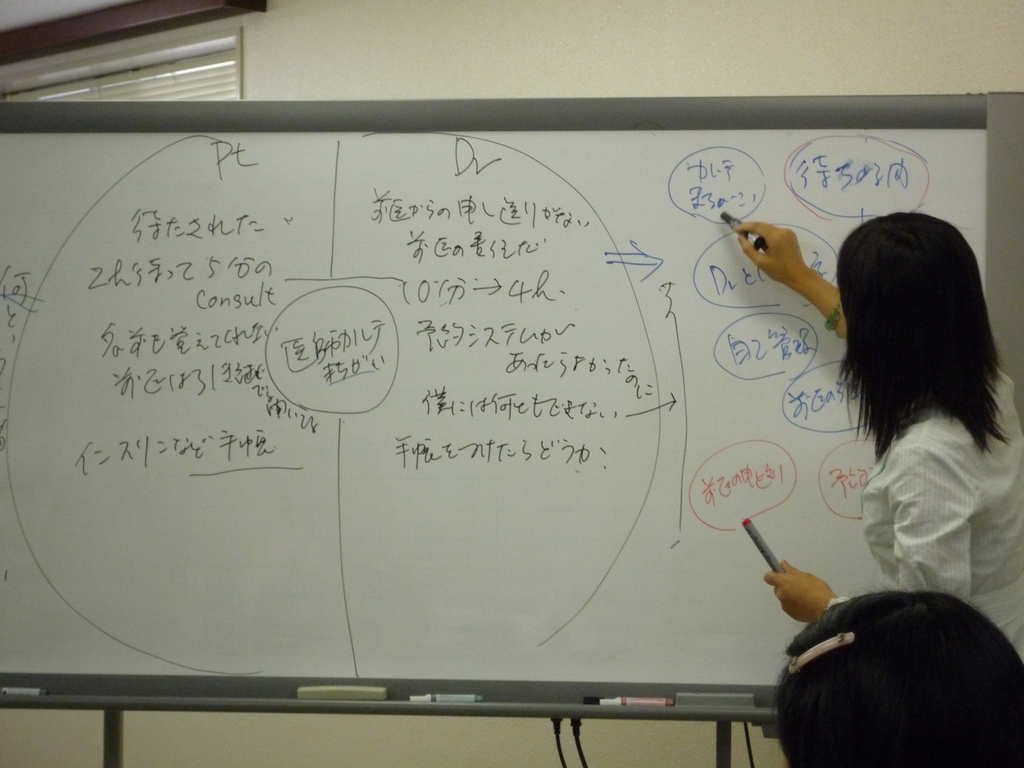 Pt
待たされた
2h待って5分の
consult
名前も覚えてくれない
前医は引き継
インスリンなど手帳
医師カルテ
まちがい
Dr
前医からの申し送りがない
前医の責任だ
10分→4h.
予約システムが
あったらよかった
のに
僕には何ともできない
手帳をつけたらどうか?
カルテ
まちがい
待ち時間
Drと
自己管理
前医の
前医の申し送り
予約